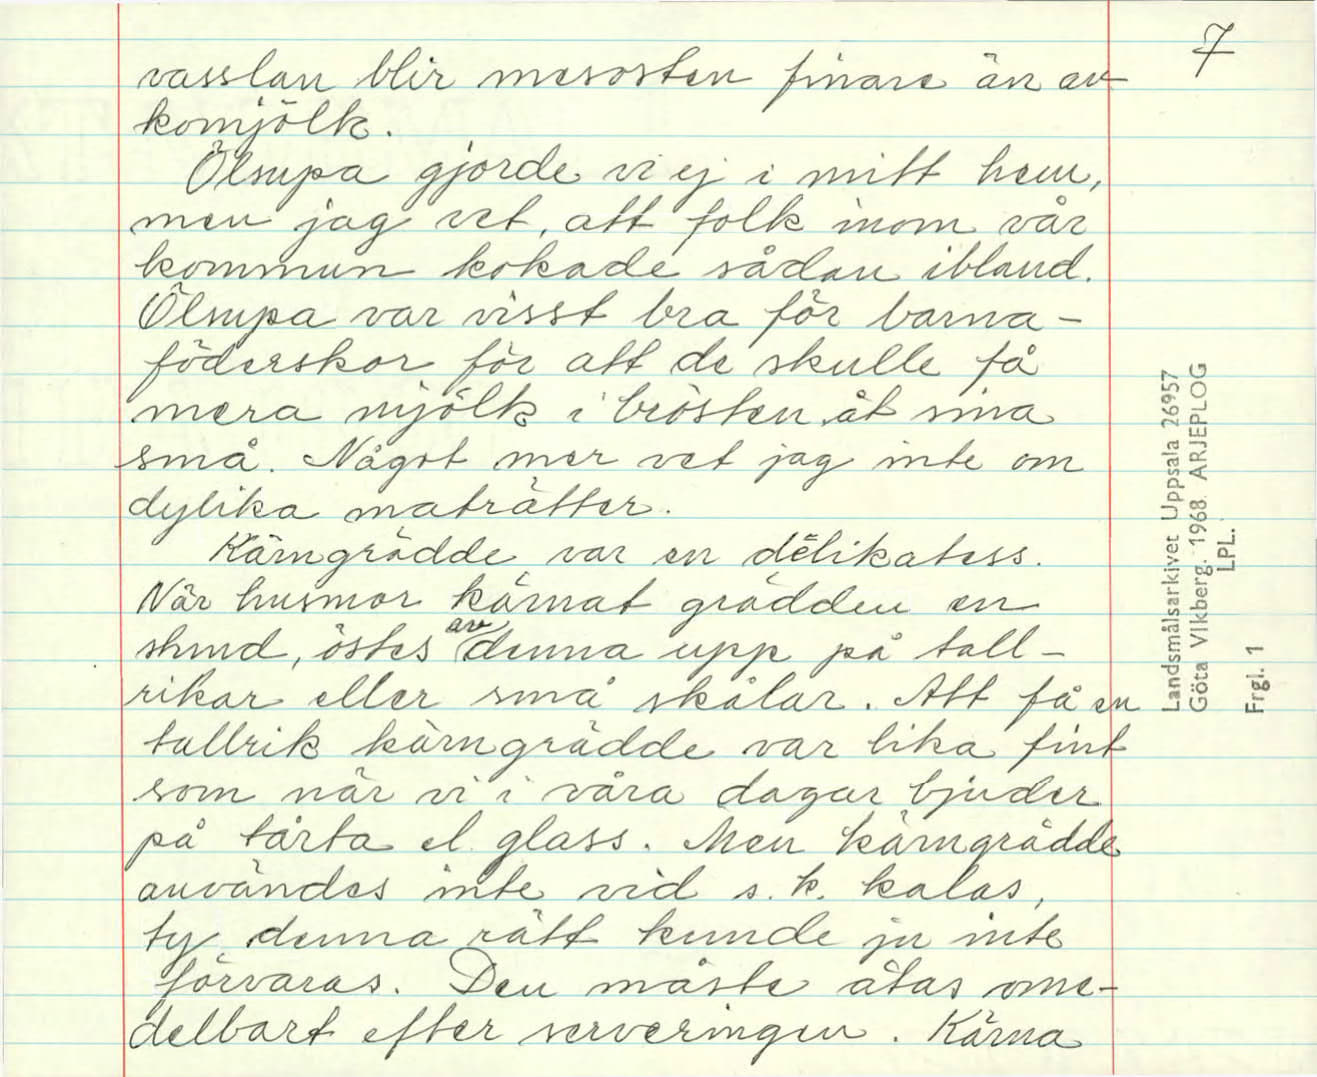 7
vasslan blir mesosten finare än av
komjölk.
Ölsupa gjorde vi ej i mitt hem,
men jag vet, att folk inom vår
kommun kokade sådan ibland.
Ölsupa var visst bra för barna-
föderskor för att de skulle få
mera mjölk i brösten åt sina
små. Något mer vet jag inte om
dylika maträtter.
Kärngrädde var en delikatess.
När husmor kärnat grädden en
stund, östes av denna upp på tall-
rikar eller små skålar. Att få en
tallrik kärngrädde var lika fint
som när vi i våra dagar bjuder
på tårta el. glass. Men kärngrädde
användes inte vid s.k. kalas,
ty denna rätt kunde ju inte
förvaras. Den måste ätas ome-
delbart efter serveringen. Kärna
Landsmålsarkivet Uppsala 26957
Göta Vikberg. 1968. ARJEPLOG
LPL.
Frgl. 1